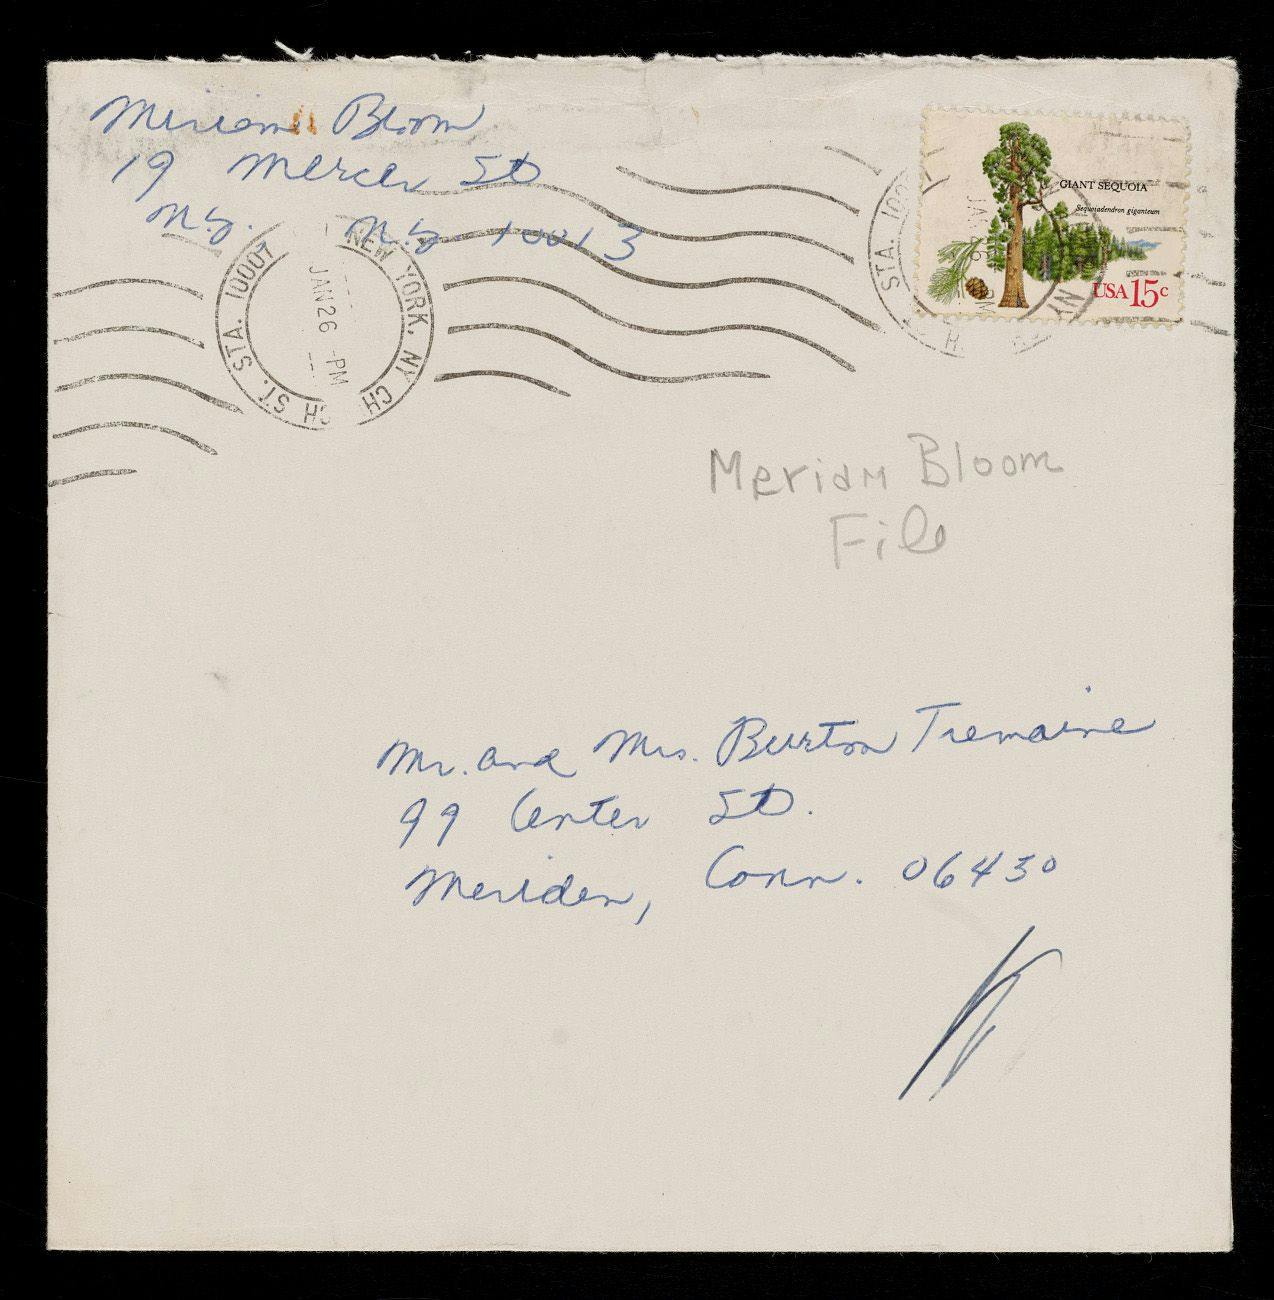 Miriam Bloom
19 Mercer St
N.Y. N.Y 10013
NEW YORK, NY CH ST. STA. 10007
JAN 26
PM
STA. 100
NY
JA
PM
GIANT SEQUOIA
Sequoiadendron giganteum
USA 15c
Meriam Bloom
File
Mr. and Mrs. Burton Tremaine
99 Center St.
Meriden, Conn. 06430